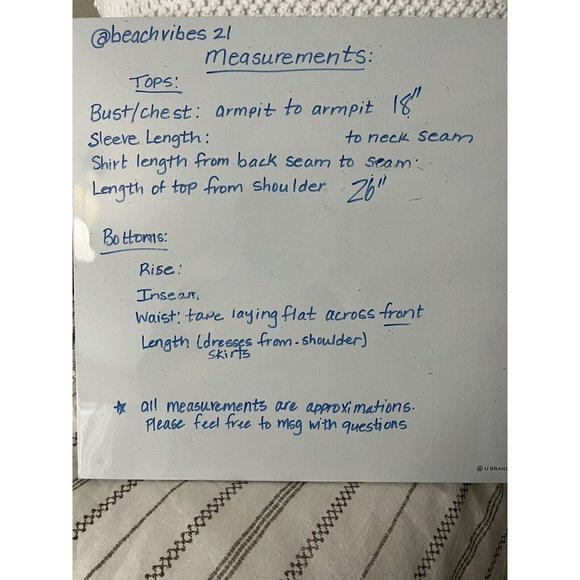 @beachvibes 21
Measurements:
Tops:
Bust/chest: armpit to armpit 18"
Sleeve Length: to neck seam
Shirt length from back seam to seam.
Length of top from shoulder 26"
Bottoms:
Rise:
Inseam
Waist: tape laying flat across front
Length (dresses from-shoulder)
skirts
☆ all measurements are approximations.
Please feel free to msg with questions
U BRAND